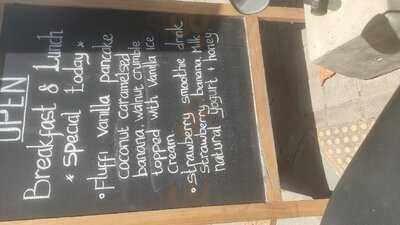 OPEN
Breakfast & Lunch
* special today *
• Fluffi vanilla pancake
coconut caramelised
banana walnut crumble
topped with vanilla Ice
cream
• strawberry smoothie drink
strawberry banana milk
natural yogurt honey